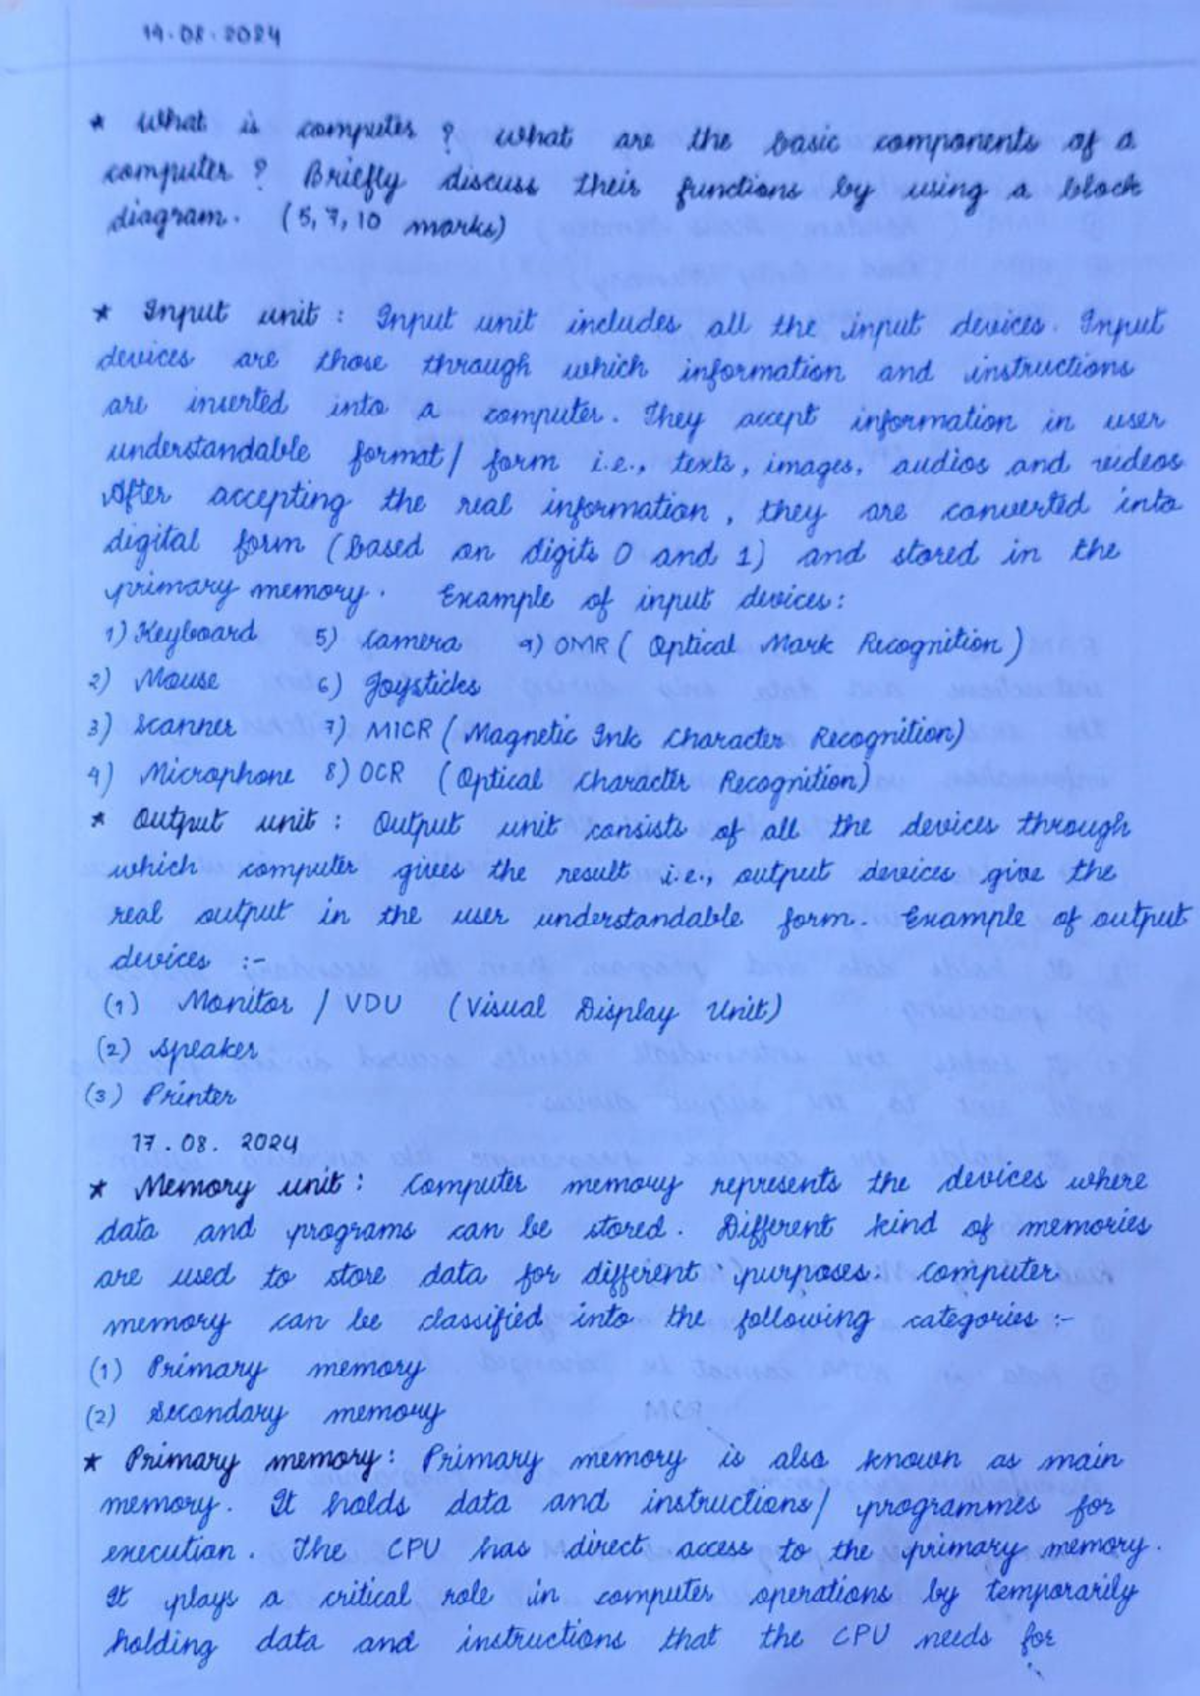 14.08.2024
* What is computer ? What are the basic components of a
computer ? Briefly discuss their functions by using a block
diagram. (5, 7, 10 marks)
* Input unit : Input unit includes all the input devices. Input
devices are those through which information and instructions
are inserted into a computer. They accept information in user
understandable format / form i.e., texts, images, audios and videos
After accepting the real information, they are converted into
digital form (based on digits 0 and 1) and stored in the
primary memory. Example of input devices :
1) Keyboard 5) Camera 9) OMR ( Optical Mark Recognition )
2) Mouse 6) Joysticks
3) Scanner 7) MICR ( Magnetic Ink Character Recognition)
4) Microphone 8) OCR ( Optical Character Recognition)
* Output unit : Output unit consists of all the devices through
which computer gives the result i.e., output devices give the
real output in the user understandable form. Example of output
devices :-
(1) Monitor / VDU (Visual Display Unit)
(2) Speaker
(3) Printer
17.08. 2024
* Memory unit : Computer memory represents the devices where
data and programs can be stored. Different kind of memories
are used to store data for different purposes. Computer
memory can be classified into the following categories :-
(1) Primary memory
(2) Secondary memory
* Primary memory : Primary memory is also known as main
memory. It holds data and instructions / programmes for
execution. The CPU has direct access to the primary memory.
It plays a critical role in computer operations by temporarily
holding data and instructions that the CPU needs for